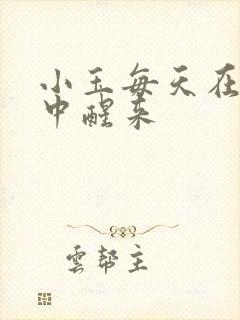 小玉每天在
中醒来
雲幫主